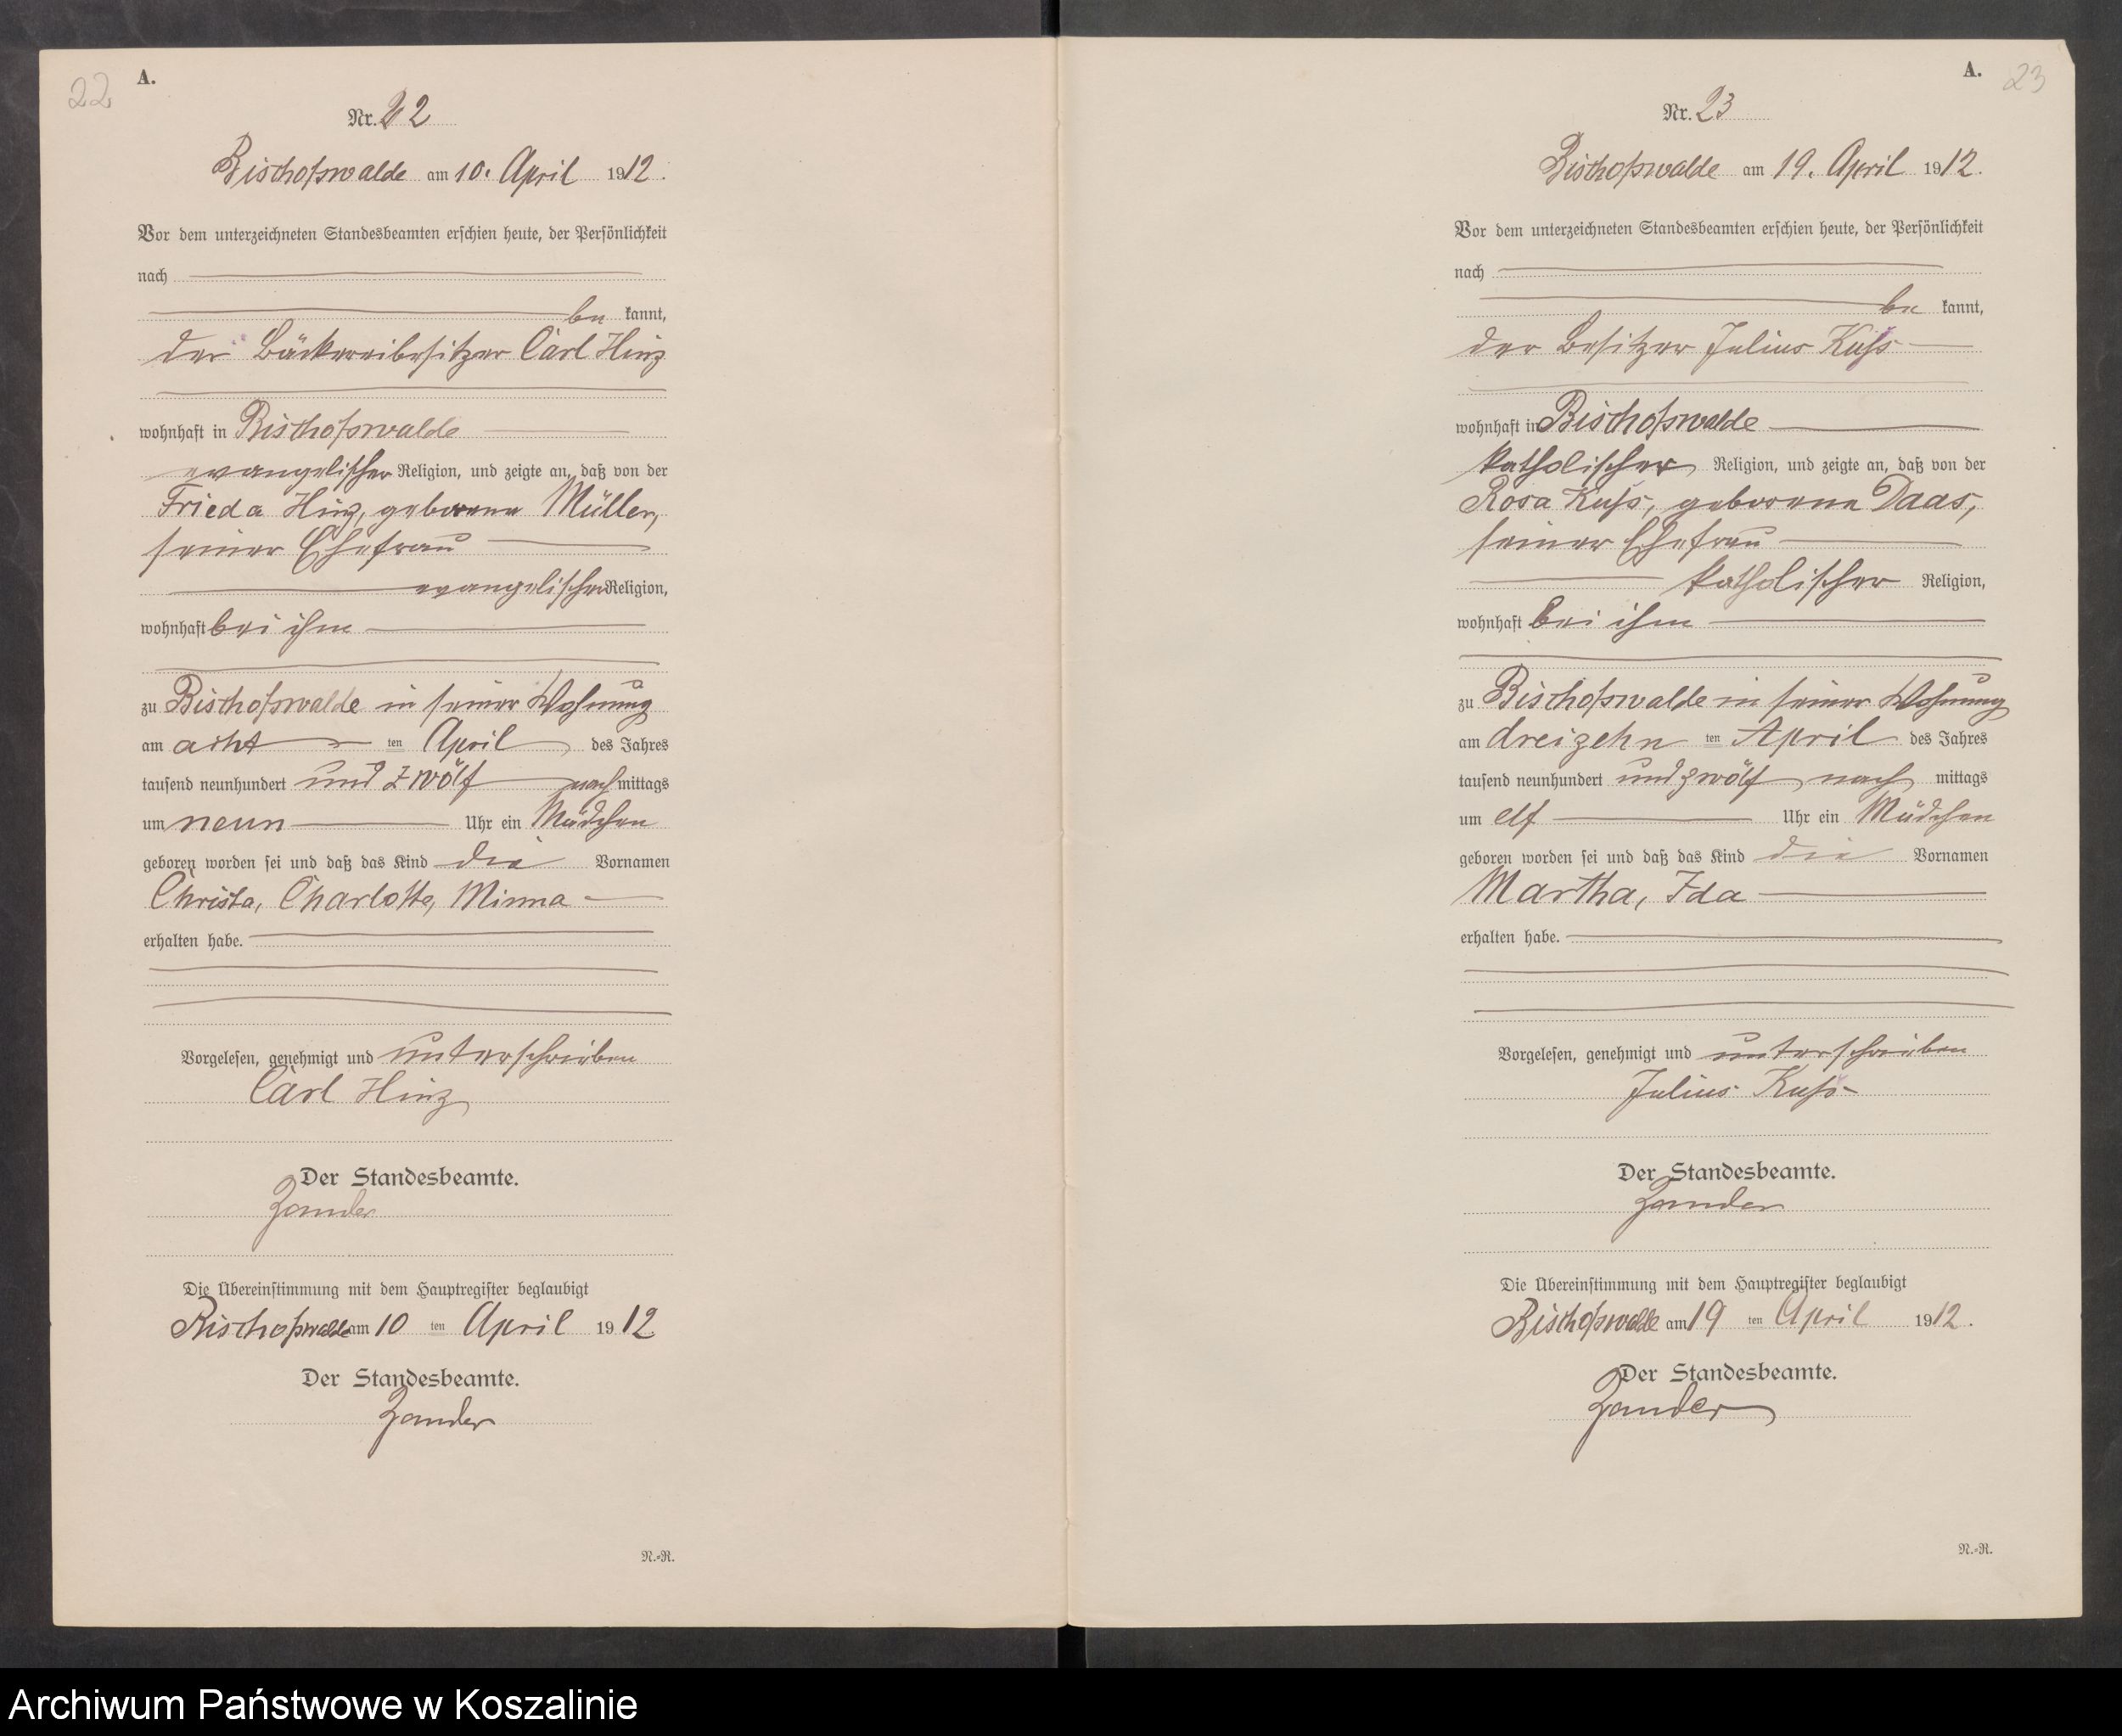 22
A.
Nr. 22
Bischofswalde am 10. April 1912.
Vor dem unterzeichneten Standesbeamten erschien heute, der Persönlichkeit
nach
be kannt,
der Bäckereibesitzer Carl Hinz
wohnhaft in Bischofswalde
evangelischer Religion, und zeigte an, daß von der
Frieda Hinz, geborene Müller,
seiner Ehefrau
evangelischer Religion,
wohnhaft bei ihm
zu Bischofswalde in seiner Wohnung
am acht ten April des Jahres
tausend neunhundert und zwölf nach mittags
um neun Uhr ein Mädchen
geboren worden sei und daß das Kind die Vornamen
Christa, Charlotte, Minna
erhalten habe.
Vorgelesen, genehmigt und unterschrieben
Carl Hinz
Der Standesbeamte.
Zander
Die Übereinstimmung mit dem Hauptregister beglaubigt
Bischofswalde am 10 ten April 1912
Der Standesbeamte.
Zander
N.-R.
A.
23
Nr. 23
Bischofswalde am 19. April 1912.
Vor dem unterzeichneten Standesbeamten erschien heute, der Persönlichkeit
nach
be kannt,
der Besitzer Julius Kuß
wohnhaft in Bischofswalde
katholischer Religion, und zeigte an, daß von der
Rosa Kuß, geborene Daas,
seiner Ehefrau
katholischer Religion,
wohnhaft bei ihm
zu Bischofswalde in seiner Wohnung
am dreizehn ten April des Jahres
tausend neunhundert und zwölf nach mittags
um elf Uhr ein Mädchen
geboren worden sei und daß das Kind die Vornamen
Martha, Ida
erhalten habe.
Vorgelesen, genehmigt und unterschrieben
Julius Kuß
Der Standesbeamte.
Zander
Die Übereinstimmung mit dem Hauptregister beglaubigt
Bischofswalde am 19 ten April 1912.
Der Standesbeamte.
Zander
N.-R.
Archiwum Państwowe w Koszalinie